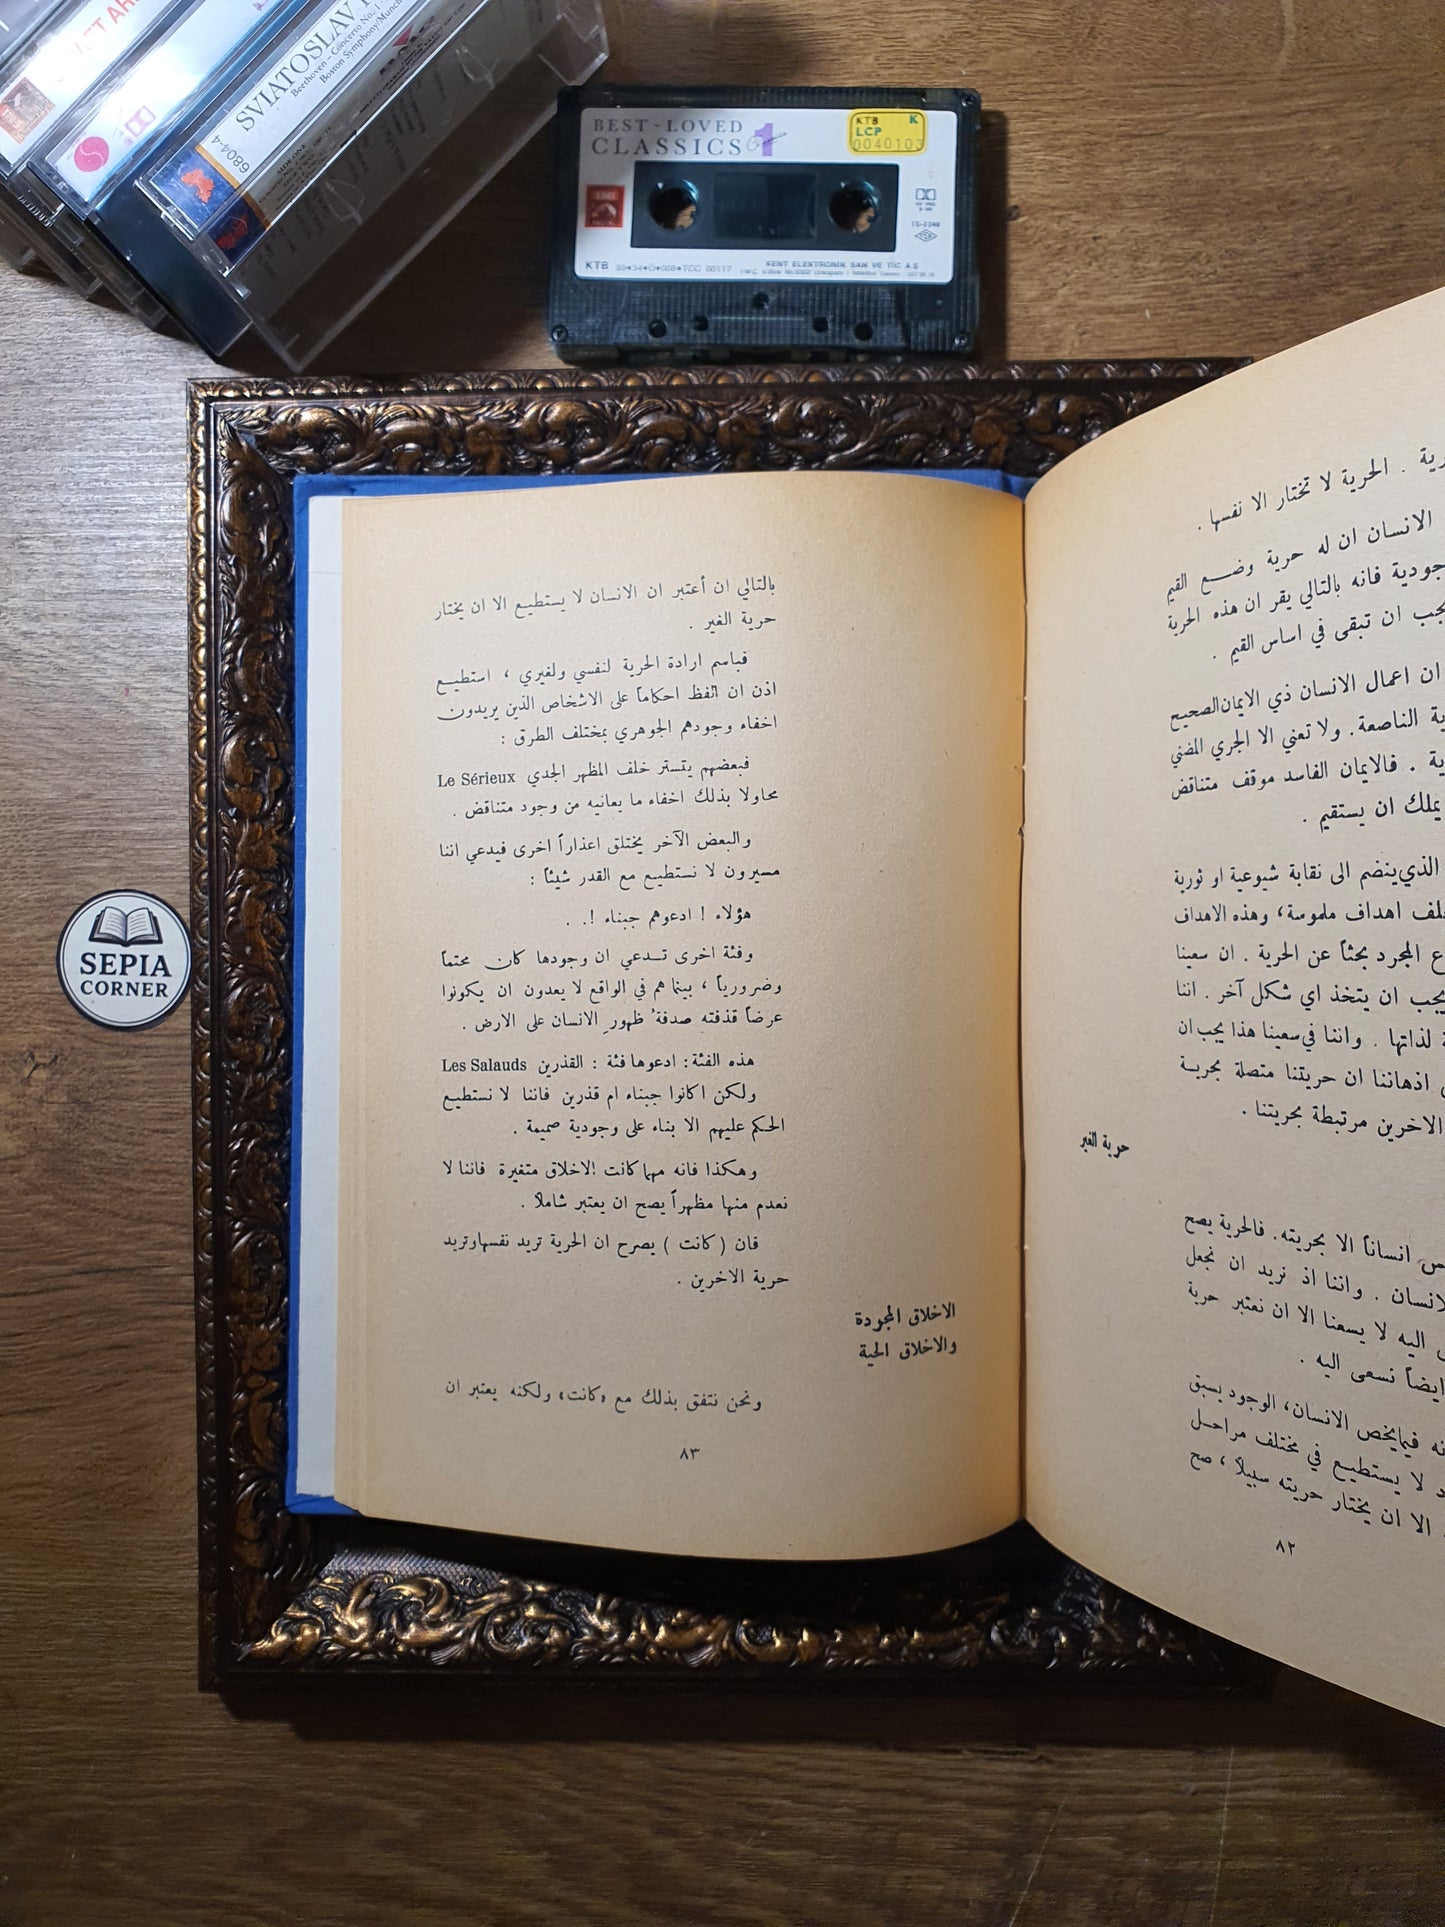 SVIATOSLAV
Beethoven - Concerto No. 1
Boston Symphony/Munch
6804-4
BEST-LOVED
CLASSICS 1
KTB K
LCP
0040103
EMI
KTB
KENT ELEKTRONIK SAN VE TIC A.Ş
SEPIA
CORNER
الحرية لا تختار الا نفسها .
الانسان ان له حرية وضع القيم
فانه بالتالي يقر ان هذه الحرية
يجب ان تبقى في اساس القيم .
ان اعمال الانسان ذي الايمان الصحيح
الناصعة . ولا تعني الا الجري المضني
. فالايمان الفاسد موقف متناقض
يملك ان يستقيم .
الذي ينضم الى نقابة شيوعية او ثورية
اهداف ملموسة ، وهذه الاهداف
المجرد بحثاً عن الحرية . ان سعينا
يجب ان يتخذ اي شكل آخر . اننا
لذاتها . واننا في سعينا هذا يجب ان
اذهاننا ان حريتنا متصلة بحرية
الاخرين مرتبطة بحريتنا .
حرية الغير
انساناً الا بحريته . فالحرية يصح
. واننا اذ نريد ان نجعل
اليه لا يسعنا الا ان نعتبر حرية
ايضاً نسعى اليه .
فيما يخص الانسان ، الوجود يسبق
لا يستطيع في مختلف مراحل
الا ان يختار حريته سبيلاً ، صح
٨٢
بالتالي ان أعتبر ان الانسان لا يستطيع الا ان يختار
حرية الغير .
فباسم ارادة الحرية لنفسي ولغيري ، استطيع
اذن ان الفظ احكاماً على الاشخاص الذين يريدون
اخفاء وجودهم الجوهري بمختلف الطرق :
فبعضهم يتستر خلف المظهر الجدي Le Sérieux
محاولا بذلك اخفاء ما يعانيه من وجود متناقض .
والبعض الآخر يختلق اعذاراً اخرى فيدعي اننا
مسيرون لا نستطيع مع القدر شيئاً :
هؤلاء ! ادعوهم جبناء !. .
وفئة اخرى تدعي ان وجودها كان محتماً
وضرورياً ، بينما هم في الواقع لا يعدون ان يكونوا
عرضاً قذفته صدفةُ ظهورِ الانسان على الارض .
هذه الفئة : ادعوها فئة : القذرين Les Salauds
ولكن اكانوا جبناء ام قذرين فاننا لا نستطيع
الحكم عليهم الا بناء على وجودية صميمة .
وهكذا فانه مهما كانت الاخلاق متغيرة فاننا لا
نعدم منها مظهراً يصح ان يعتبر شاملاً .
فان ( كانت ) يصرح ان الحرية تريد نفسها وتريد
حرية الاخرين .
الاخلاق المجردة
والاخلاق الحية
ونحن نتفق بذلك مع «كانت» ولكنه يعتبر ان
٨٣